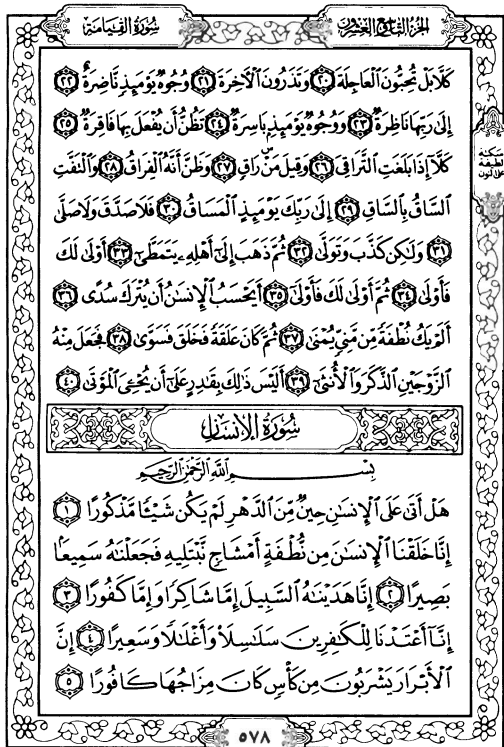 سُورَةُ القِيَامَةِ
الجُزْءُ التَّاسِعُ وَالعِشْرُونَ
كَلَّا بَلْ تُحِبُّونَ ٱلْعَاجِلَةَ ٢٠ وَتَذَرُونَ ٱلْآخِرَةَ ٢١ وُجُوهٌ يَوْمَئِذٍ نَّاضِرَةٌ ٢٢
إِلَىٰ رَبِّهَا نَاظِرَةٌ ٢٣ وَوُجُوهٌ يَوْمَئِذٍ بَاسِرَةٌ ٢٤ تَظُنُّ أَن يُفْعَلَ بِهَا فَاقِرَةٌ ٢٥
كَلَّا إِذَا بَلَغَتِ ٱلتَّرَاقِىَ ٢٦ وَقِيلَ مَنْ ۜ رَاقٍ ٢٧ وَظَنَّ أَنَّهُ ٱلْفِرَاقُ ٢٨ وَٱلْتَفَّتِ
سكتة
لطيفة
على النون
ٱلسَّاقُ بِٱلسَّاقِ ٢٩ إِلَىٰ رَبِّكَ يَوْمَئِذٍ ٱلْمَسَاقُ ٣٠ فَلَا صَدَّقَ وَلَا صَلَّىٰ
٣١ وَلَٰكِن كَذَّبَ وَتَوَلَّىٰ ٣٢ ثُمَّ ذَهَبَ إِلَىٰٓ أَهْلِهِۦ يَتَمَطَّىٰٓ ٣٣ أَوْلَىٰ لَكَ
فَأَوْلَىٰ ٣٤ ثُمَّ أَوْلَىٰ لَكَ فَأَوْلَىٰٓ ٣٥ أَيَحْسَبُ ٱلْإِنسَٰنُ أَن يُتْرَكَ سُدًى ٣٦
أَلَمْ يَكُ نُطْفَةً مِّن مَّنِىٍّ يُمْنَىٰ ٣٧ ثُمَّ كَانَ عَلَقَةً فَخَلَقَ فَسَوَّىٰ ٣٨ فَجَعَلَ مِنْهُ
ٱلزَّوْجَيْنِ ٱلذَّكَرَ وَٱلْأُنثَىٰٓ ٣٩ أَلَيْسَ ذَٰلِكَ بِقَٰدِرٍ عَلَىٰٓ أَن يُحْۦِىَ ٱلْمَوْتَىٰ ٤٠
سُورَةُ الإِنسَانِ
بِسْمِ ٱللَّهِ ٱلرَّحْمَٰنِ ٱلرَّحِيمِ
هَلْ أَتَىٰ عَلَى ٱلْإِنسَٰنِ حِينٌ مِّنَ ٱلدَّهْرِ لَمْ يَكُن شَيْـًٔا مَّذْكُورًا ١
إِنَّا خَلَقْنَا ٱلْإِنسَٰنَ مِن نُّطْفَةٍ أَمْشَاجٍ نَّبْتَلِيهِ فَجَعَلْنَٰهُ سَمِيعًۢا
بَصِيرًا ٢ إِنَّا هَدَيْنَٰهُ ٱلسَّبِيلَ إِمَّا شَاكِرًا وَإِمَّا كَفُورًا ٣
إِنَّآ أَعْتَدْنَا لِلْكَٰفِرِينَ سَلَٰسِلَا۟ وَأَغْلَٰلًا وَسَعِيرًا ٤ إِنَّ
ٱلْأَبْرَارَ يَشْرَبُونَ مِن كَأْسٍ كَانَ مِزَاجُهَا كَافُورًا ٥
٥٧٨